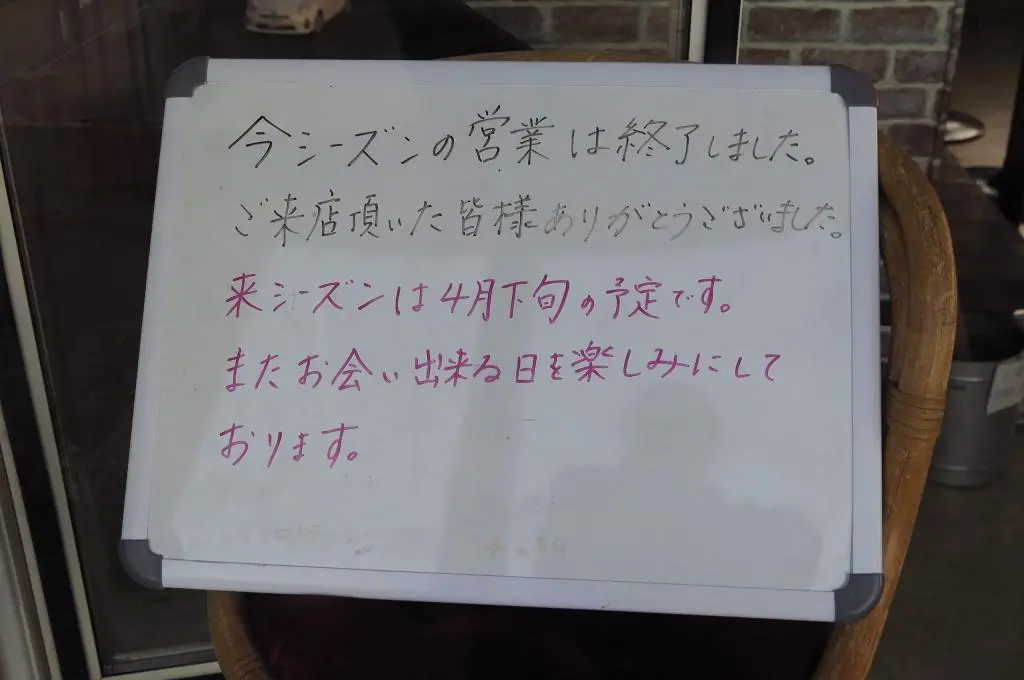 今シーズンの営業は終了しました。
ご来店頂いた皆様ありがとうございました。
来シーズンは4月下旬の予定です。
またお会い出来る日を楽しみにして
おります。